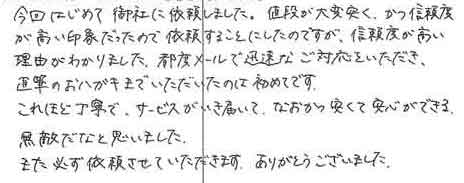 今回はじめて御社に依頼しました。値段が大変安く、かつ信頼度
が高い印象だったので依頼することにしたのですが、信頼度が高い
理由がわかりました。都度メールで迅速なご対応をいただき、
直筆のおハガキまでいただいたのは初めてです。
これほど丁寧で、サービスがいき届いて、なおかつ安くて安心ができる。
無敵だなと思いました。
また必ず依頼させていただきます。ありがとうございました。